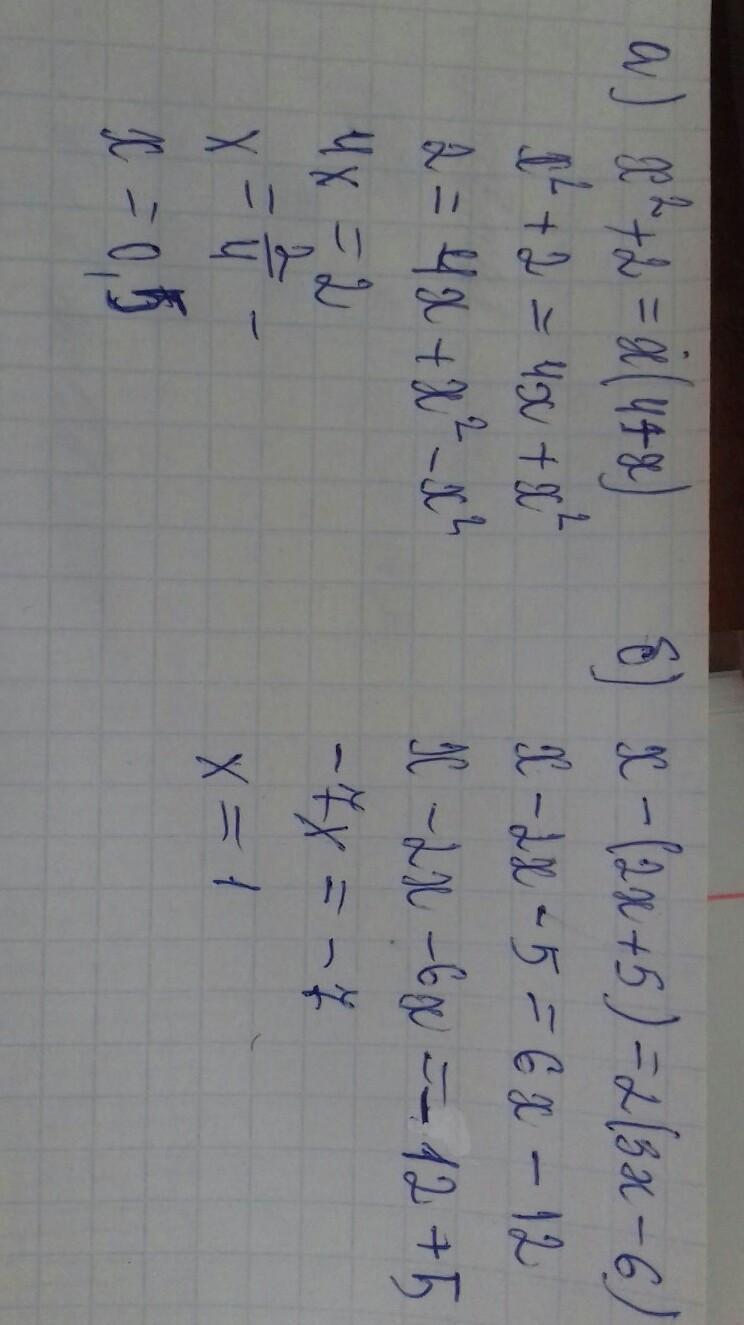 а) x²+2=x(4+x)
x²+2=4x+x²
2=4x+x²-x²
4x=2
x=2/4
x=0,5
б) x-(2x+5)=2(3x-6)
x-2x-5=6x-12
x-2x-6x=-12+5
-7x=-7
x=1